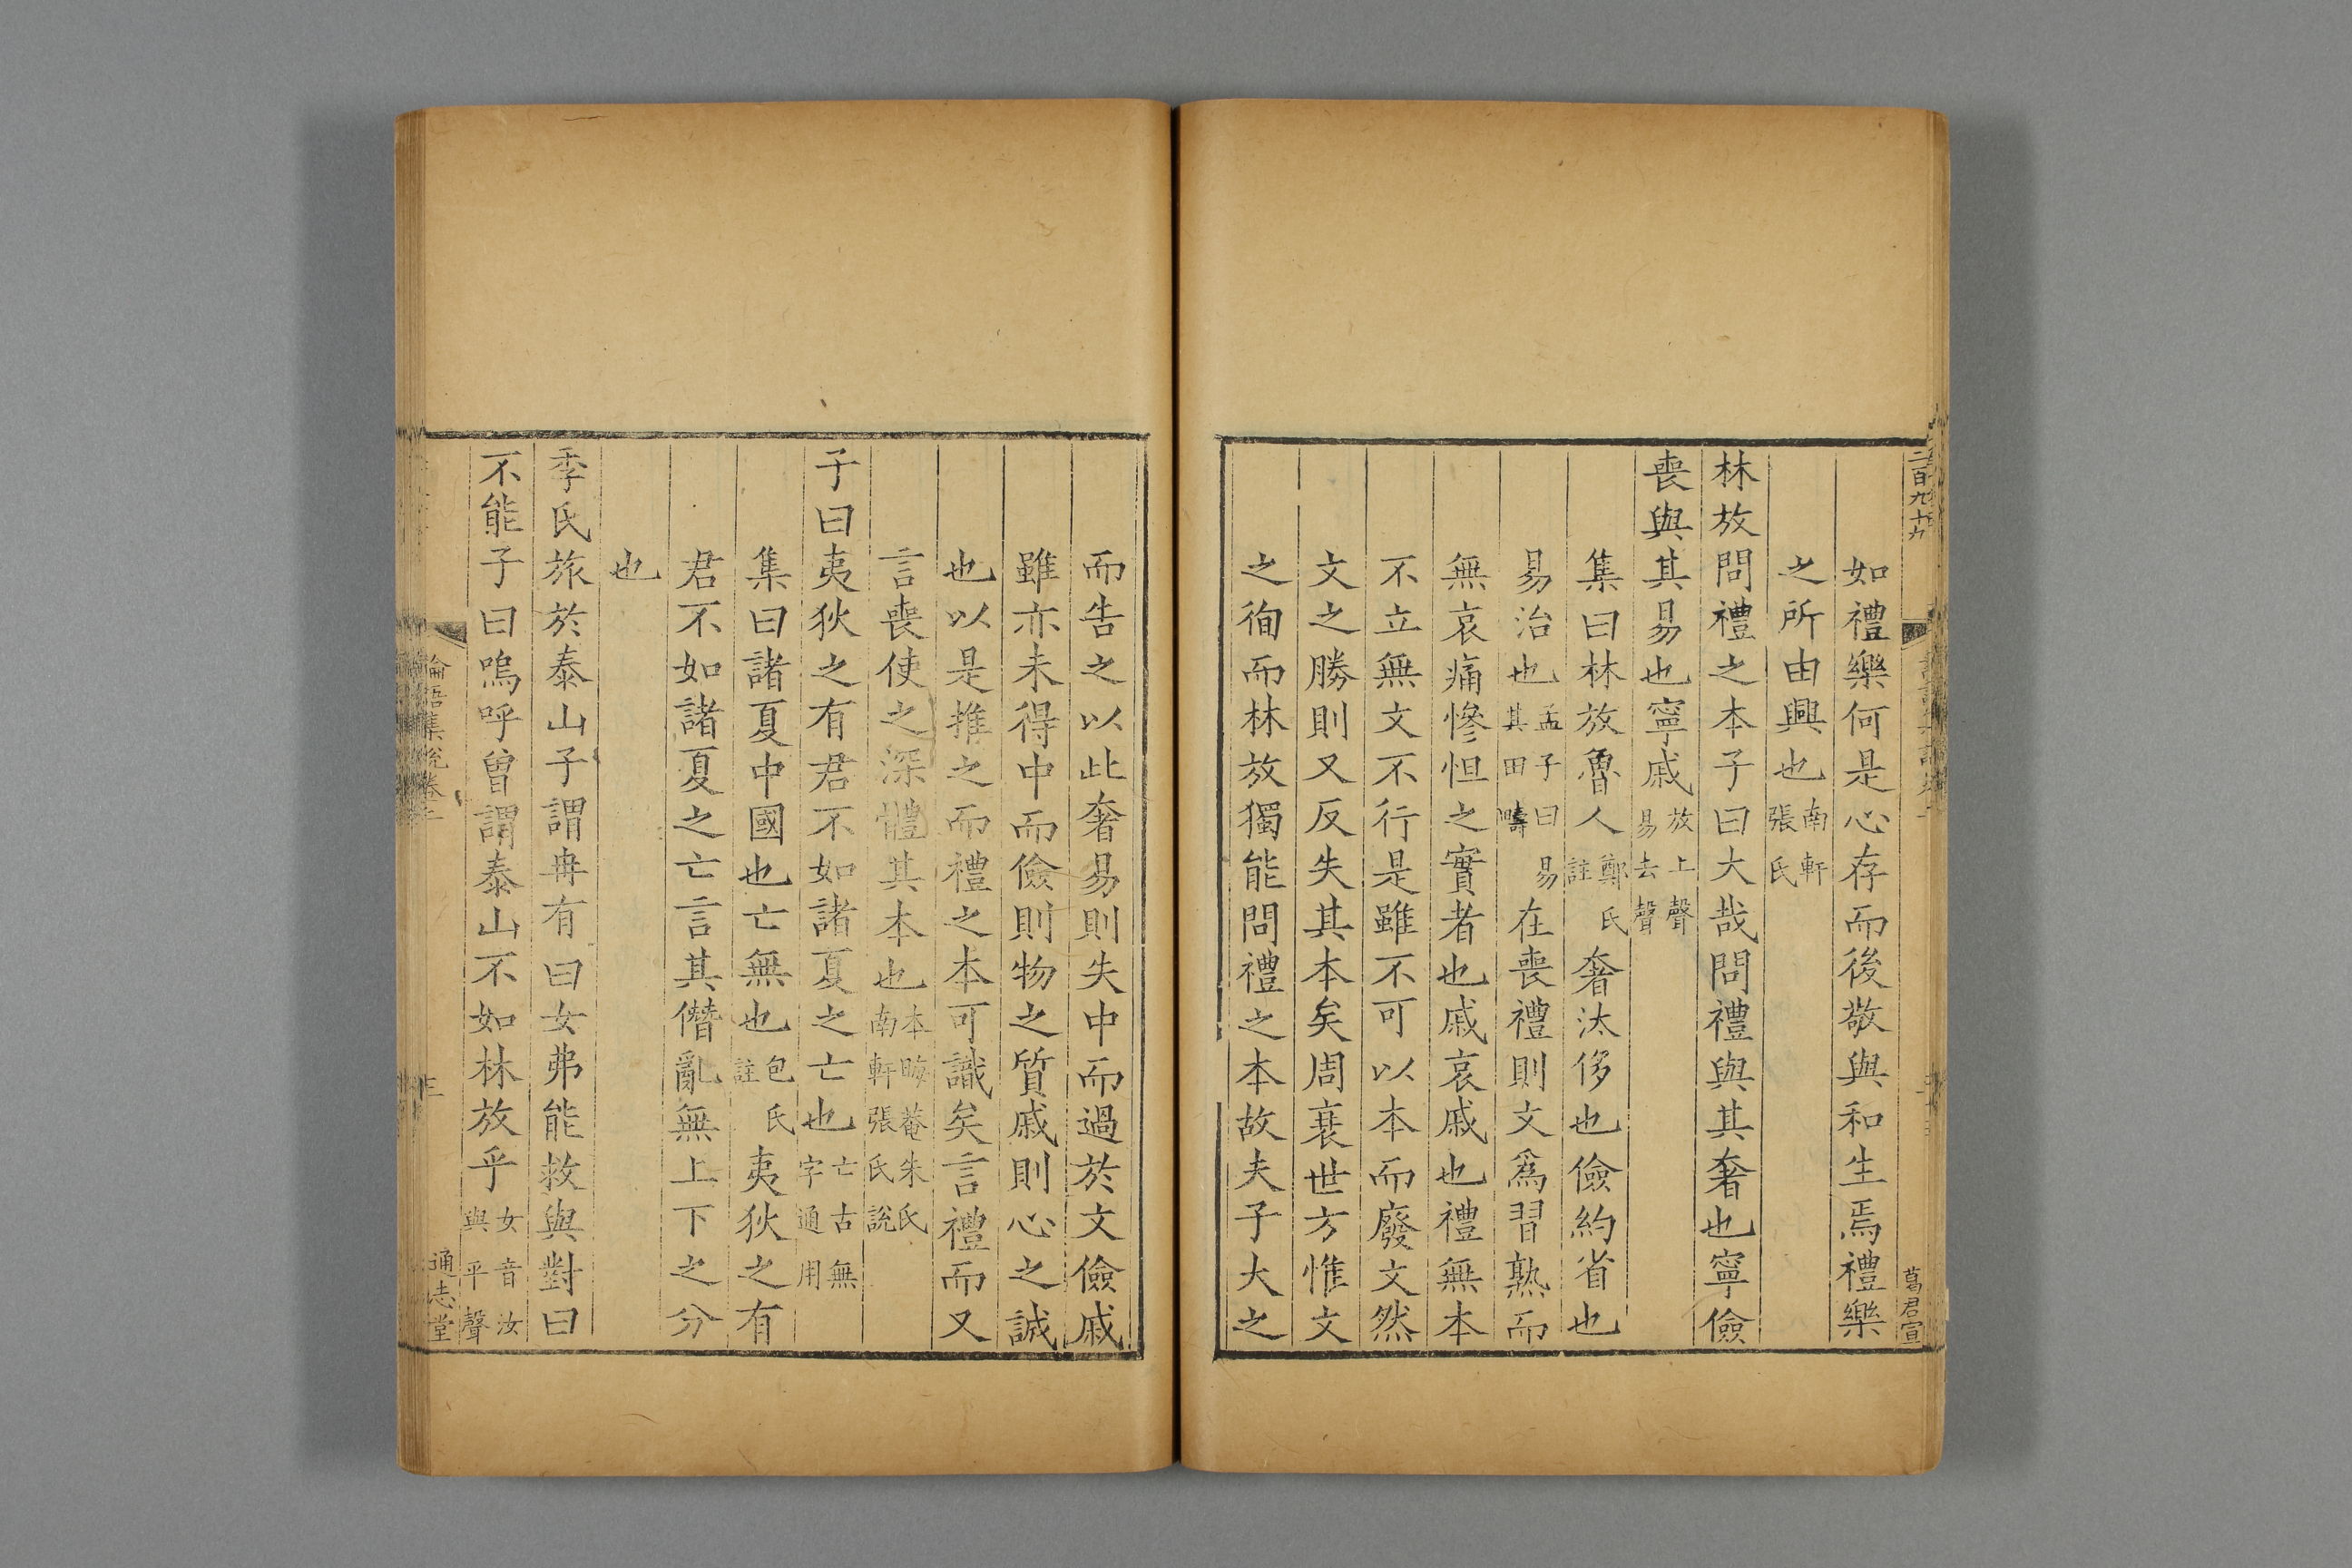 二百九十九
葛君宣
如禮樂何是心存而後敬與和生焉禮樂
之所由興也南軒張氏
林放問禮之本子曰大哉問禮與其奢也寧儉
喪與其易也寧戚放上聲易去聲
集曰林放魯人鄭氏註奢汰侈也儉約省也
易治也孟子曰易其田疇在喪禮則文爲習熟而
無哀痛慘怛之實者也戚哀戚也禮無本
不立無文不行是雖不可以本而廢文然
文之勝則又反失其本矣周衰世方惟文
之徇而林放獨能問禮之本故夫子大之
而告之以此奢易則失中而過於文儉戚
雖亦未得中而儉則物之質戚則心之誠
也以是推之而禮之本可識矣言禮而又
言喪使之深體其本也本晦菴朱氏南軒張氏說
子曰夷狄之有君不如諸夏之亡也亡古無字通用
集曰諸夏中國也亡無也包氏註夷狄之有
君不如諸夏之亡言其僭亂無上下之分
也
季氏旅於泰山子謂冉有曰女弗能救與對曰
不能子曰嗚呼曾謂泰山不如林放乎女音汝與平聲
論語集說卷二
三
通志堂